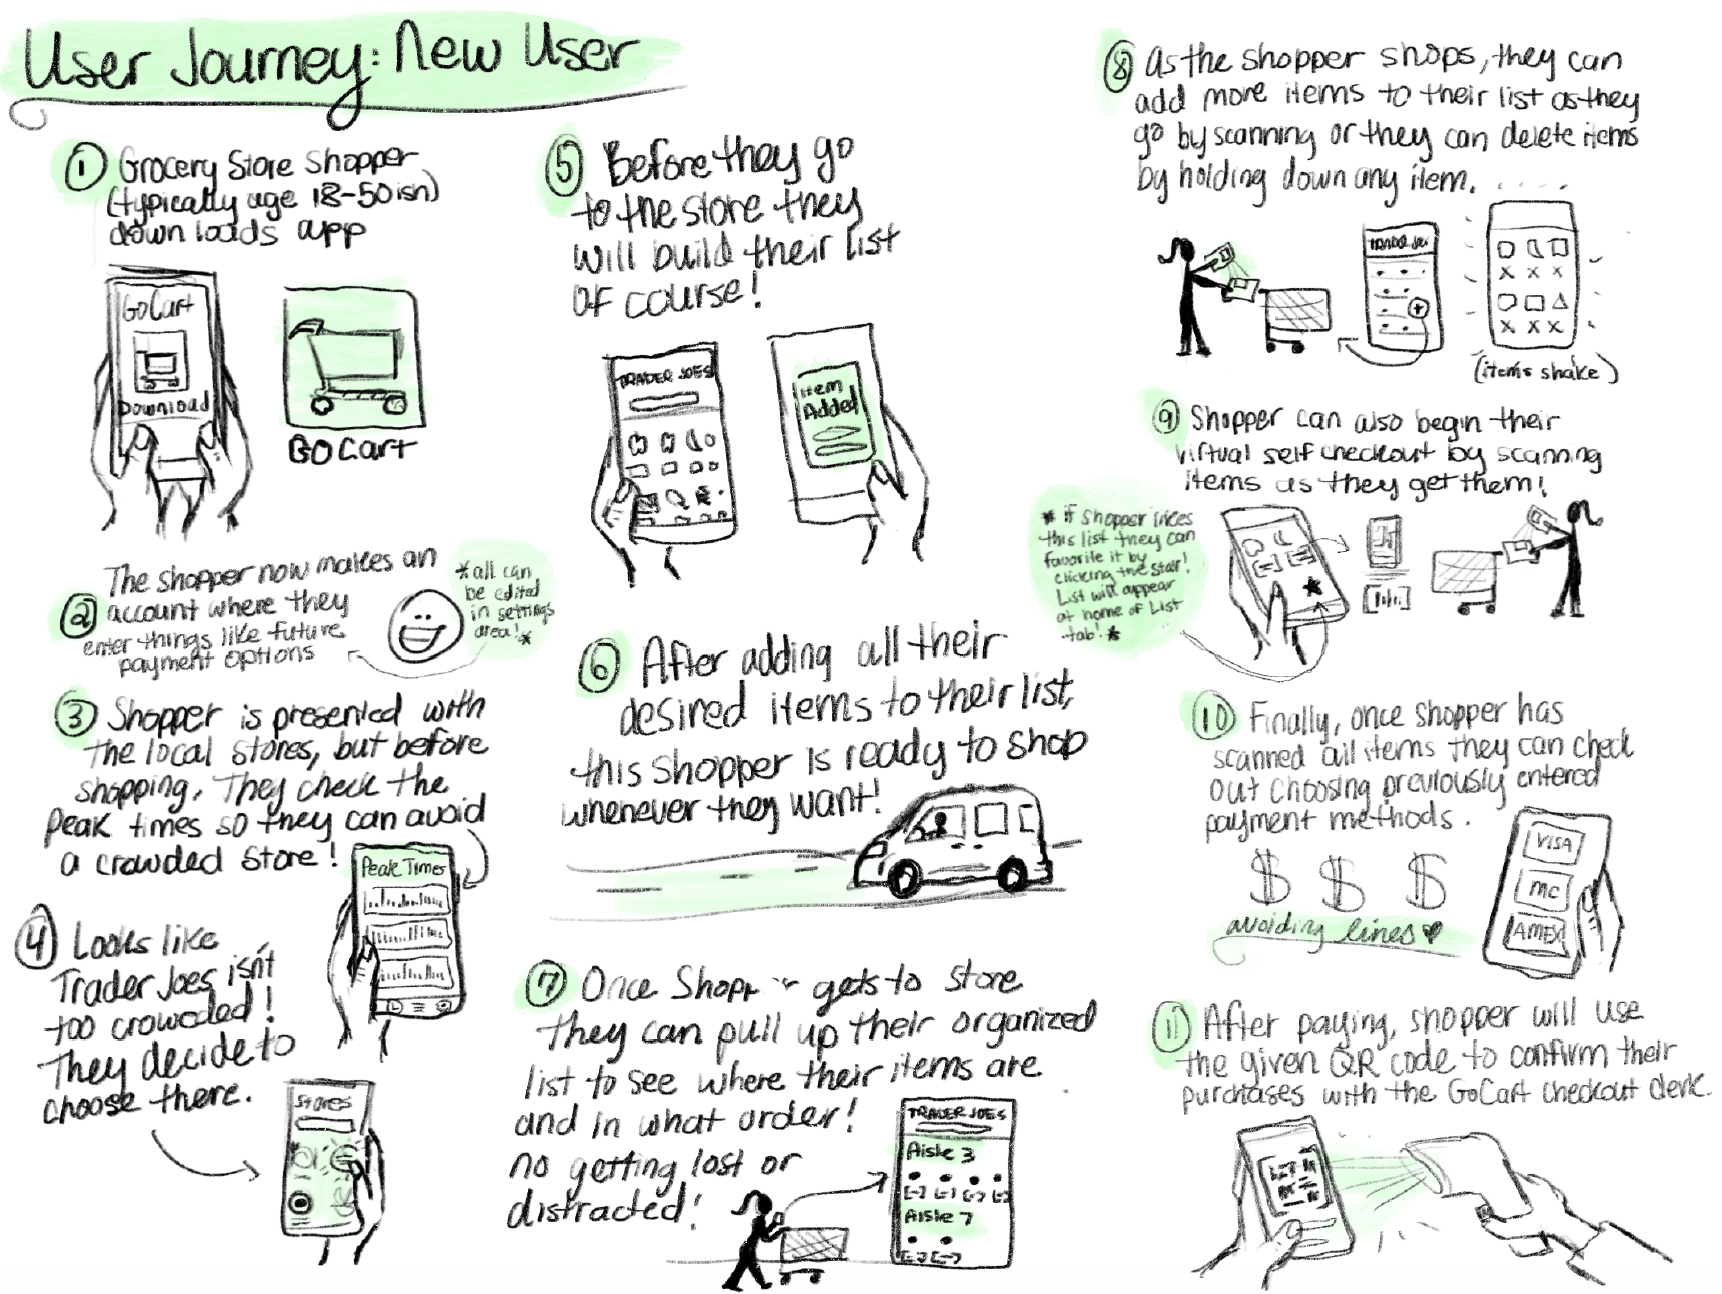 User Journey: New User
1 Grocery Store Shopper
(typically age 18-50ish)
downloads app
GoCart
Download
GO Cart
The shopper now makes an
2 account where they
enter things like future
payment options
*all can
be edited
in settings
area!*
3 Shopper is presented with
the local stores, but before
shopping, They check the
Peak times so they can avoid
a crowded store!
Peak Times
4 Looks like
Trader Joes isn't
too crowded!
They decide to
choose there.
Stores
5 Before they go
to the store they
will build their list
of course!
TRADER JOES
Item
Added
6 After adding all their
desired items to their list,
this shopper is ready to shop
whenever they want!
7 Once Shopper gets to store
they can pull up their organized
list to see where their items are
and in what order!
no getting lost or
distracted!
TRADER JOES
Aisle 3
Aisle 7
8 As the shopper shops, they can
add more items to their list as they
go by scanning or they can delete items
by holding down any item.
TRADER JOES
+
X X X
X X X
(items shake)
9 Shopper can also begin their
virtual self checkout by scanning
items as they get them!
* if shopper likes
this list they can
favorite it by
clicking the star!
List will appear
at home of List
tab! *
10 Finally, once shopper has
scanned all items they can check
out choosing previously entered
payment methods.
$ $ $
avoiding lines ♥
VISA
MC
AMEX
11 After paying, shopper will use
the given QR code to confirm their
purchases with the GoCart checkout clerk.